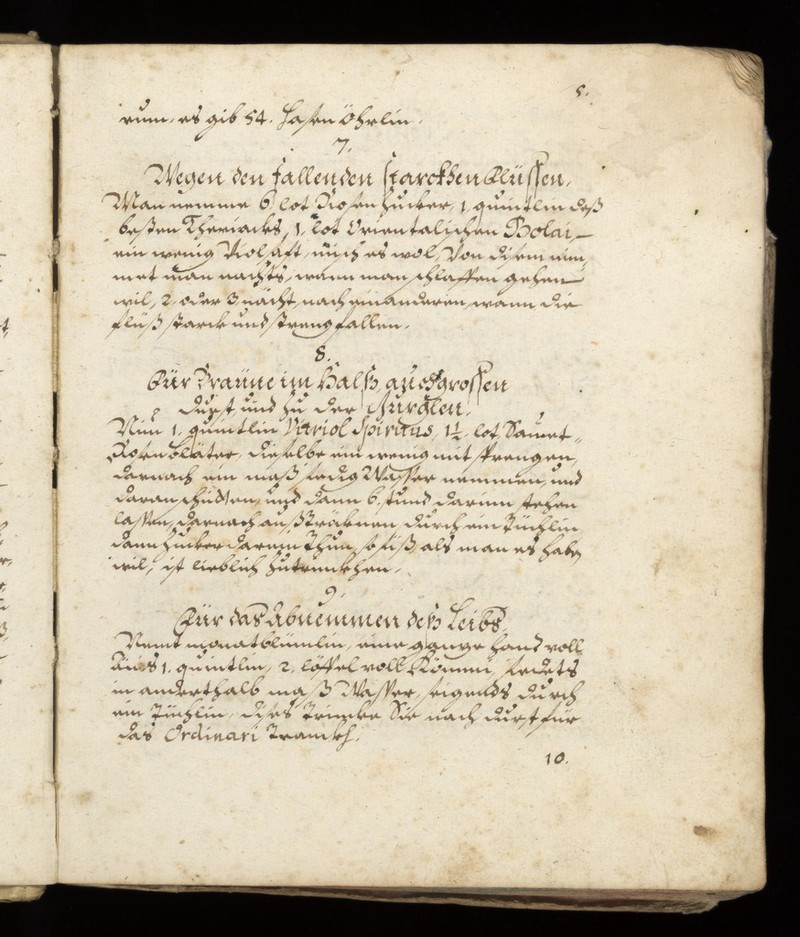 5.
rum, es gib 54. Hasen Öhrlin.
7.
Wegen den fallenden starckhen Flüssen.
Man nemme 6 lot Rosenzucker, 1. quintlin deß
besten Theriacks, 1. lot Orientalischen Bolai,
ein wenig Violsaft, misch es wol, Von disem nim̄
met man nachts, wann man schlaffen gehen
wil, 2. oder 3. nächt, nach einanderen, wann die
flüß starck und streng fallen.
8.
Für Bräune im Halß auch grossen
durst und zu der Gurglen.
Nim 1. quintlin Vitriol Spiritus, 1½ lot Saurt-
Rosenbläter, dieselbe ein wenig mit sprengen,
darnach ein maß siedig Wasser nemmen, und
daran schütten, und dann 6. stund darinn stehen
lassen, darnach außtröcknen durch ein Tüchlin
dann zucker darein Thun, so süß als man es haben
wil, ist lieblich zutrinckhen.
9.
Für das Abnemmen deß Leibs.
Nemt monatblümlin, eine gantze hand voll
Anis 1. quintlin, 2. löffel voll Kömmi, siedets
in anderthalb maß Wasser, seigends durch
ein Tüchlin, dises Trincke Sie nach durst für
das Ordinari Tranckh.
10.